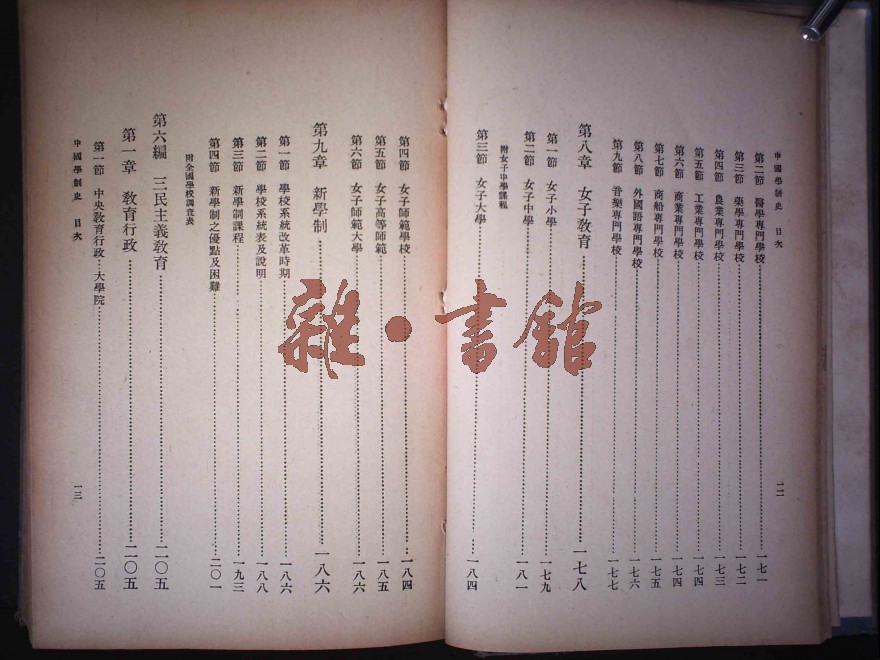 中國學制史 目次
第二節 醫學專門學校 一七一
第三節 藥學專門學校 一七二
第四節 農業專門學校 一七三
第五節 工業專門學校 一七四
第六節 商業專門學校 一七四
第七節 商船專門學校 一七五
第八節 外國語專門學校 一七六
第九節 音樂專門學校 一七七
第八章 女子教育 一七八
第一節 女子小學 一七九
第二節 女子中學 一八一
附女子中學課程
第三節 女子大學 一八四
一二
第四節 女子師範學校 一八四
第五節 女子高等師範 一八五
第六節 女子師範大學 一八六
第九章 新學制 一八六
第一節 學校系統改革時期 一八六
第二節 學校系統表及說明 一八八
第三節 新學制課程 一九三
第四節 新學制之優點及困難 二〇一
附全國學校調查表
第六編 三民主義教育 二〇五
第一章 教育行政 二〇五
第一節 中央教育行政:大學院 二〇五
中國學制史 目次
一三
雜·書館